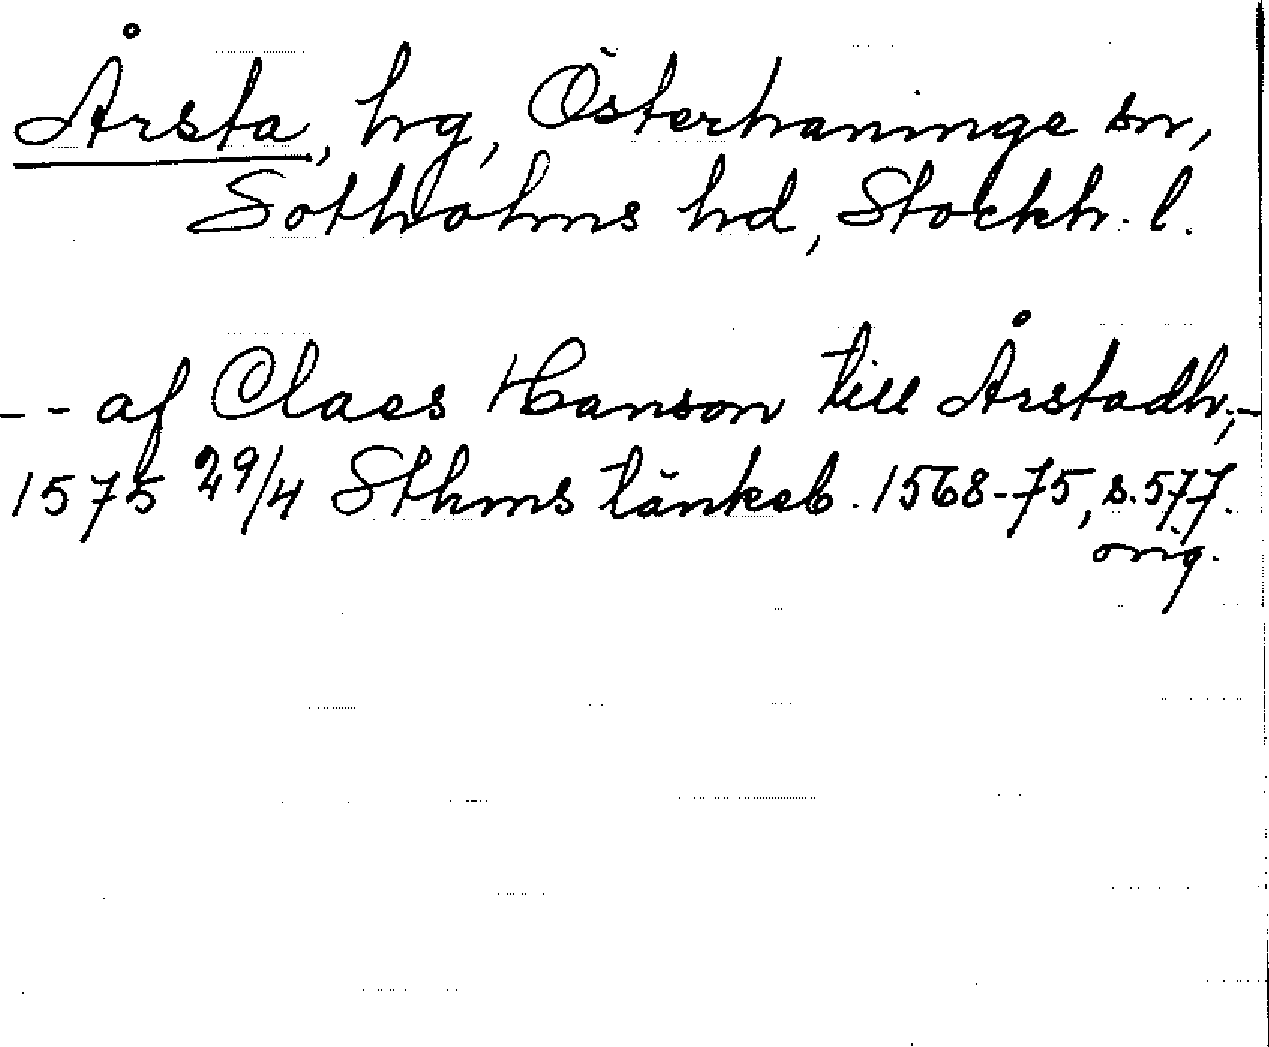 Årsta, hrg, Österhaninge sn,
Sotholms hd, Stockh. l.
-- af Claes Hanson till Årstadh,-
1575 29/4 Sthms tänkeb. 1568-75, s. 577.
orig.